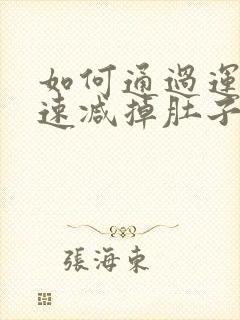 如何通過運
速減掉肚子
張海東